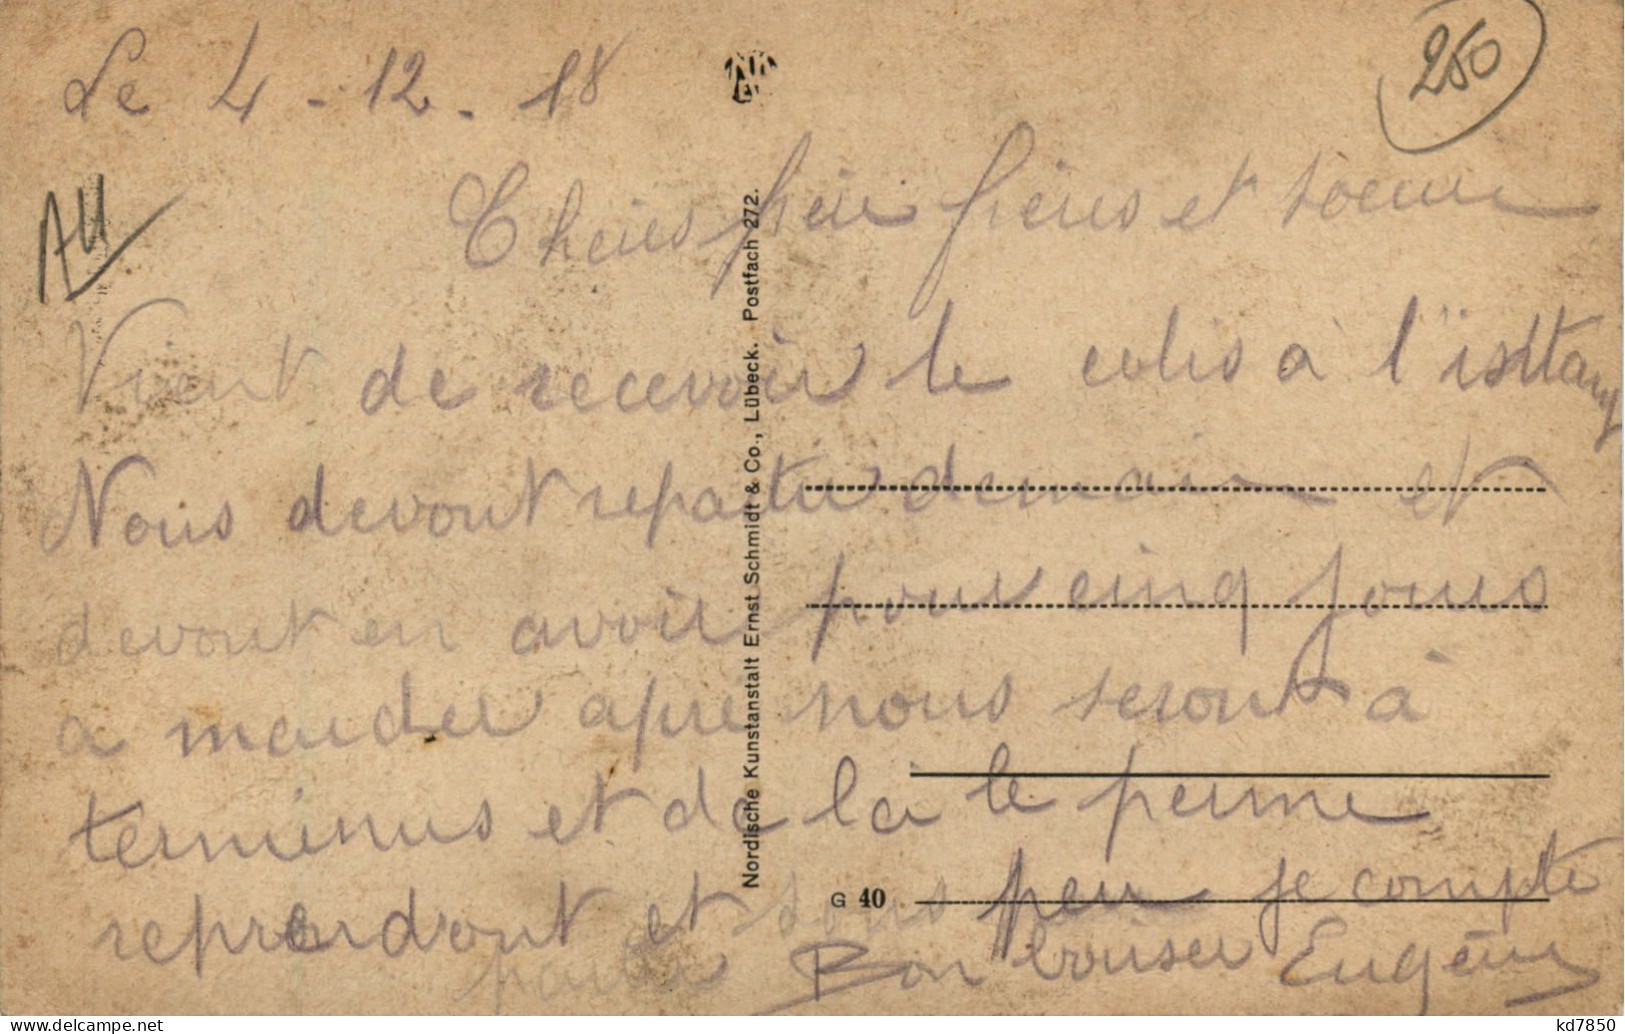 Le 4 - 12 - 18
250
AU
Cheres père frères et soeur
Vient de recevoir le colis à l'isttang
Nous devont repartir demain et
devont en avoir pour cinq jours
a marcher apre nous seront à
terminus et de la le perme
reprendont et sous peu je compte
partir Bon baiser Eugène
Nordische Kunstanstalt Ernst Schmidt & Co., Lübeck. Postfach 272.
G 40
kd7850